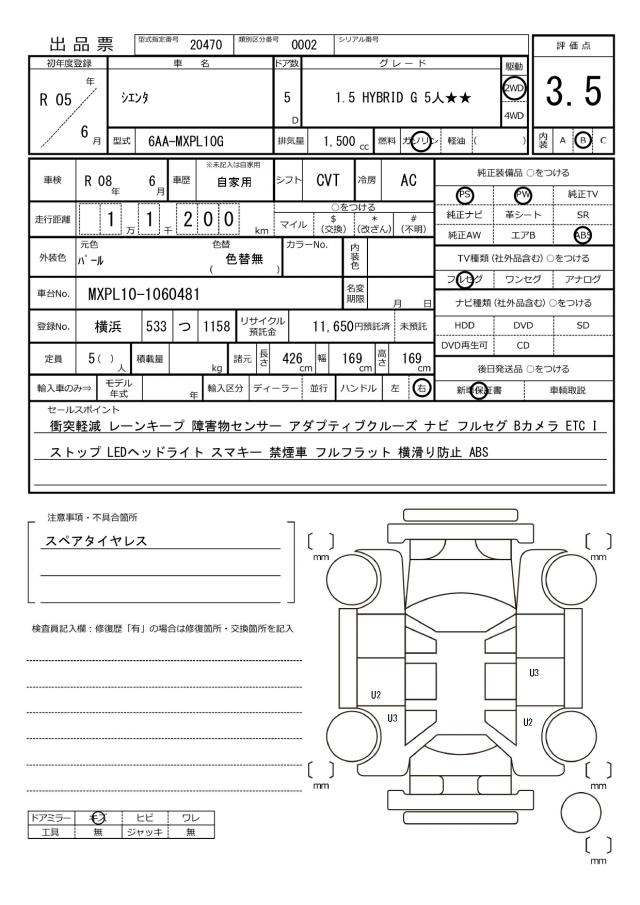 出品票 型式指定番号 20470 類別区分番号 0002 シリアル番号
評価点
3.5
内装 A B C
初年度登録 車名 ドア数 グレード 駆動
R 05 年 6 月
シエンタ
5 D
1.5 HYBRID G 5人★★
2WD
4WD
型式 6AA-MXPL10G 排気量 1,500 cc 燃料 ガソリン 軽油 ( )
車検 R 08 年 6 月 車歴 ※未記入は自家用 自家用 シフト CVT 冷房 AC
走行距離 1 万 1 千 200 km
○をつける
マイル $ (交換) * (改ざん) # (不明)
外装色 元色 パール 色替 ( 色替無 ) カラーNo. 内装色
車台No. MXPL10-1060481 名変期限 月 日
登録No. 横浜 533 つ 1158 リサイクル預託金 11,650円預託済 未預託
定員 5( )人 積載量 kg 諸元 長さ 426 cm 幅 169 cm 高さ 169 cm
輸入車のみ⇒ モデル年式 年 輸入区分 ディーラー 並行 ハンドル 左 右
純正装備品 ○をつける
PS PW 純正TV
純正ナビ 革シート SR
純正AW エアB ABS
TV種類(社外品含む)○をつける
フルセグ ワンセグ アナログ
ナビ種類(社外品含む)○をつける
HDD DVD SD
DVD再生可 CD
後日発送品 ○をつける
新車保証書 車輌取説
セールスポイント
衝突軽減 レーンキープ 障害物センサー アダプティブクルーズ ナビ フルセグ Bカメラ ETC I
ストップ LEDヘッドライト スマキー 禁煙車 フルフラット 横滑り防止 ABS
注意事項・不具合箇所
スペアタイヤレス
検査員記入欄：修復歴「有」の場合は修復箇所・交換箇所を記入
mm
mm
U3
U2
U3
U2
mm
mm
mm
ドアミラー キズ ヒビ ワレ
工具 無 ジャッキ 無